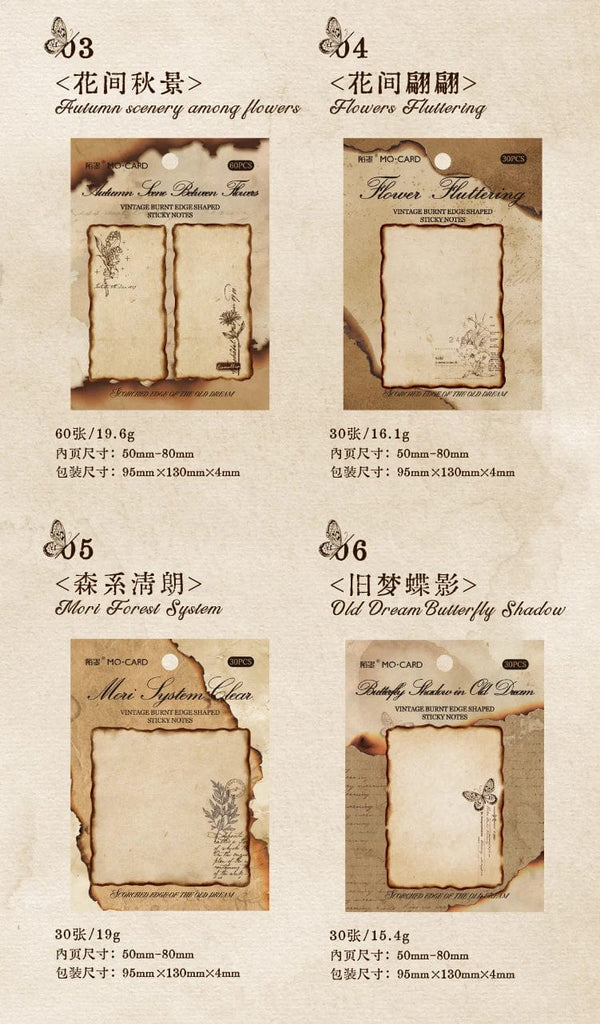 03
<花间秋景>
Autumn scenery among flowers
陌墨® MO·CARD
60PCS
Autumn Scene Between Flowers
VINTAGE BURNT EDGE SHAPED
STICKY NOTES
SCORCHED EDGE OF THE OLD DREAM
60张/19.6g
内页尺寸：50mm-80mm
包装尺寸：95mm×130mm×4mm
04
<花间翩翩>
Flowers Fluttering
陌墨® MO·CARD
30PCS
Flower Fluttering
VINTAGE BURNT EDGE SHAPED
STICKY NOTES
SCORCHED EDGE OF THE OLD DREAM
30张/16.1g
内页尺寸：50mm-80mm
包装尺寸：95mm×130mm×4mm
05
<森系清朗>
Mori Forest System
陌墨® MO·CARD
30PCS
Mori System Clear
VINTAGE BURNT EDGE SHAPED
STICKY NOTES
SCORCHED EDGE OF THE OLD DREAM
30张/19g
内页尺寸：50mm-80mm
包装尺寸：95mm×130mm×4mm
06
<旧梦蝶影>
Old Dream Butterfly Shadow
陌墨® MO·CARD
30PCS
Butterfly Shadow in Old Dream
VINTAGE BURNT EDGE SHAPED
STICKY NOTES
SCORCHED EDGE OF THE OLD DREAM
30张/15.4g
内页尺寸：50mm-80mm
包装尺寸：95mm×130mm×4mm